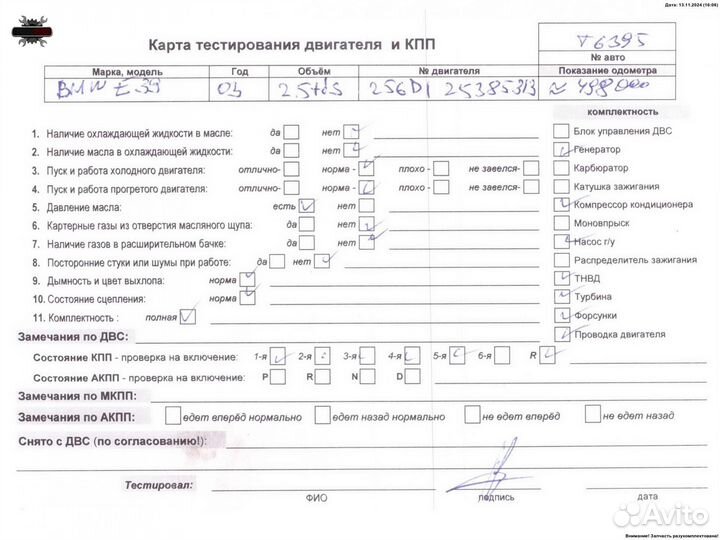 Дата: 13.11.2024 (16:06)
Карта тестирования двигателя и КПП
T6395
№ авто
Марка, модель Год Объём № двигателя Показание одометра
BMW E39 03 2.5tds 256D1 25385313 ≈ 498000
комплектность
1. Наличие охлаждающей жидкости в масле: да нет
Блок управления ДВС
2. Наличие масла в охлаждающей жидкости: да нет
Генератор
3. Пуск и работа холодного двигателя: отлично- норма - плохо - не завелся-
Карбюратор
4. Пуск и работа прогретого двигателя: отлично- норма - плохо - не завелся-
Катушка зажигания
5. Давление масла: есть нет
Компрессор кондиционера
6. Картерные газы из отверстия масляного щупа: да нет
Моновпрыск
7. Наличие газов в расширительном бачке: да нет
Насос г/у
8. Посторонние стуки или шумы при работе: да нет
Распределитель зажигания
9. Дымность и цвет выхлопа: норма
ТНВД
10. Состояние сцепления: норма
Турбина
11. Комплектность : полная
Форсунки
Замечания по ДВС:
Проводка двигателя
Состояние КПП - проверка на включение: 1-я 2-я 3-я 4-я 5-я 6-я R
Состояние АКПП - проверка на включение: P R N D
Замечания по МКПП:
Замечания по АКПП: едет вперёд нормально едет назад нормально не едет вперёд не едет назад
Снято с ДВС (по согласованию!):
Тестировал:
ФИО подпись дата
Avito
Внимание! Запчасть разукомплектована!